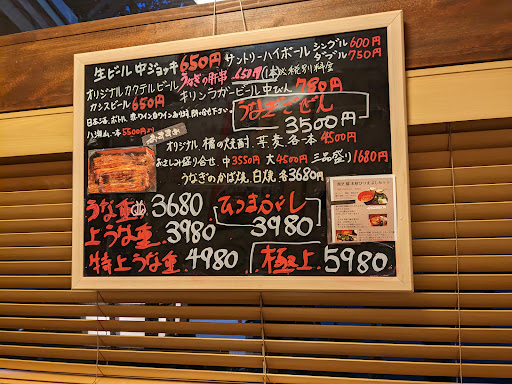 生ビール 中ジョッキ 650円 サントリーハイボール シングル 600円 ダブル 750円
オリジナルカクテルビール うなぎの肝串 650円(1本) 税別料金
カシスビール 650円 キリンラガービール中びん 780円
日本酒、ボトル、赤ワイン、白ワイン
一本 5500より
うなぎごぜん
3500円
オリジナル 橘の焼酎、芋麦 各一本 4500
おさしみ盛り合せ、中 3550円 大 4500円 三品盛り 1680円
うなぎのかば焼、白焼、各 3680円
うな重 3680
上うな重. 3980
特上うな重. 4980
ひつまぶし
3980
極上. 5980